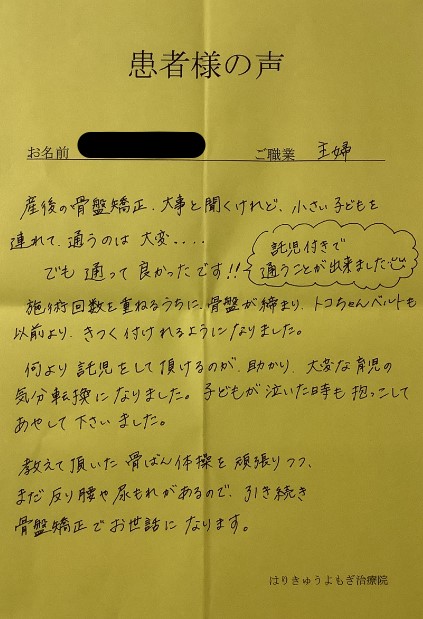 患者様の声
お名前 ご職業 主婦
産後の骨盤矯正、大事と聞くけれど、小さい子どもを
連れて、通うのは大変....
託児付きで
通うことが出来ました
でも通って良かったです!!
施術回数を重ねるうちに、骨盤が締まり、トコちゃんベルトも
以前より、きつく付けれるようになりました。
何より託児をして頂けるのが、助かり、大変な育児の
気分転換になりました。子どもが泣いた時も抱っこして
あやして下さいました。
教えて頂いた骨ばん体操を頑張りつつ、
まだ反り腰や尿もれがあるので、引き続き
骨盤矯正でお世話になります。
はりきゅうよもぎ治療院